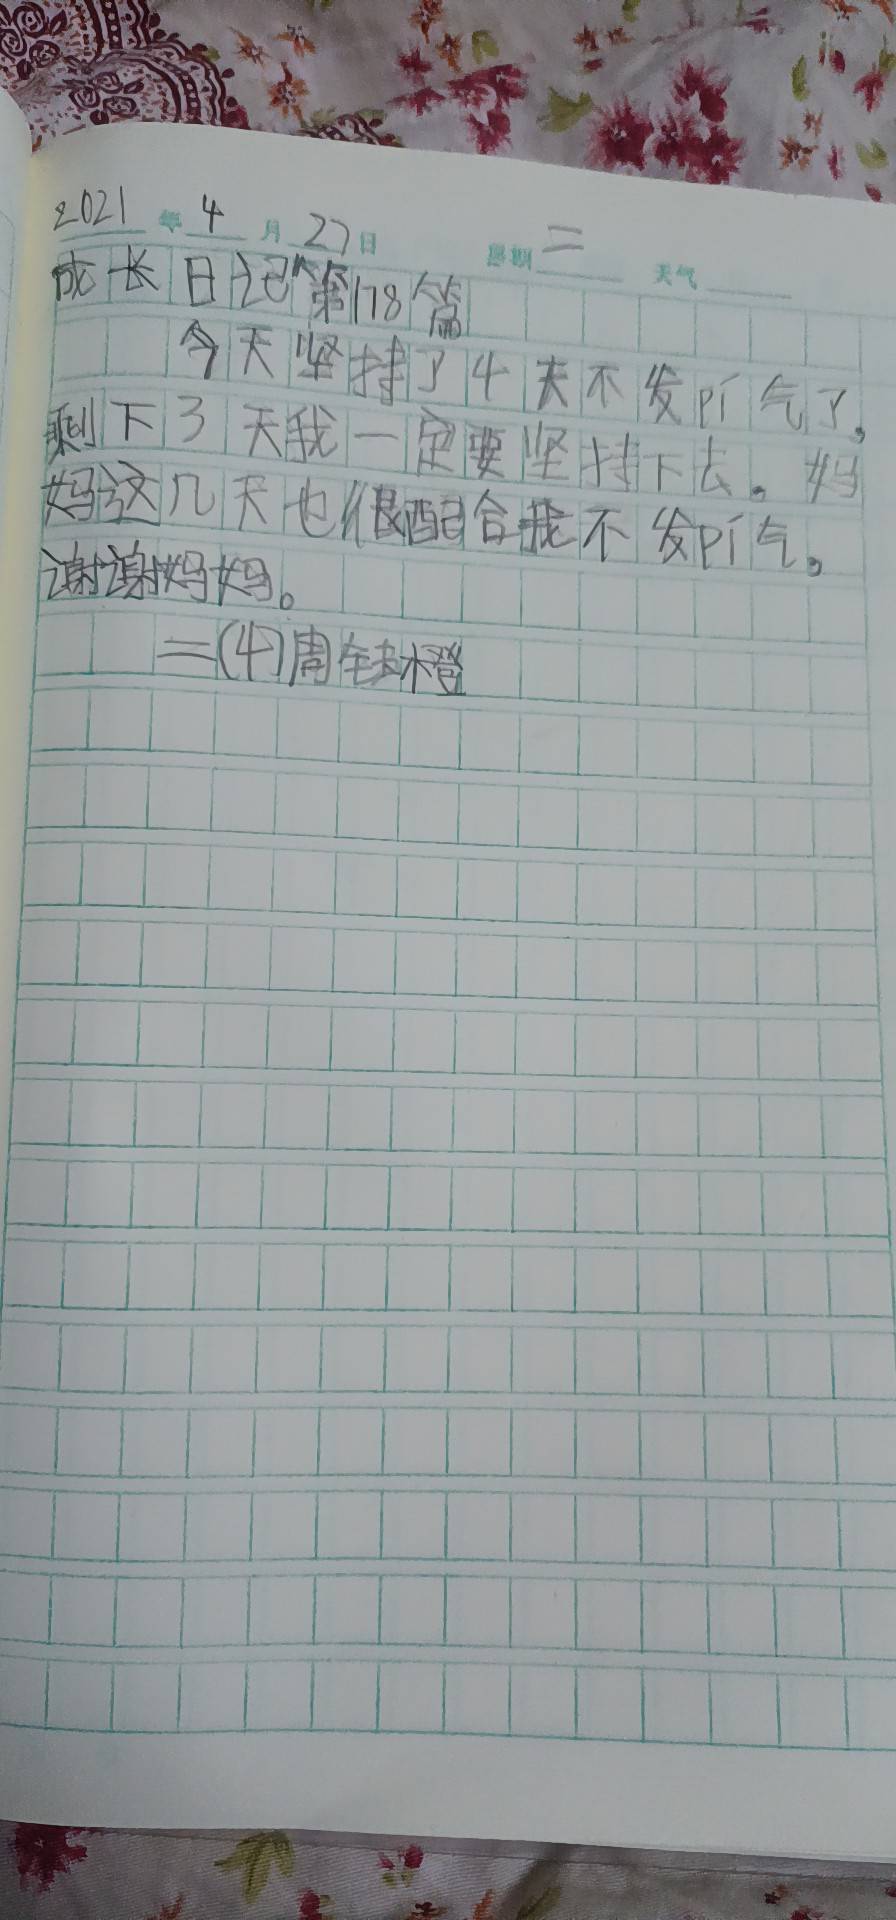 2021年4月27日 星期二 天气
成长日记第178篇
今天坚持了4天不发pí气了,
剩下3天我一定要坚持下去。妈
妈这几天也很配合我不发pí气。
谢谢妈妈。
二(4)周橙